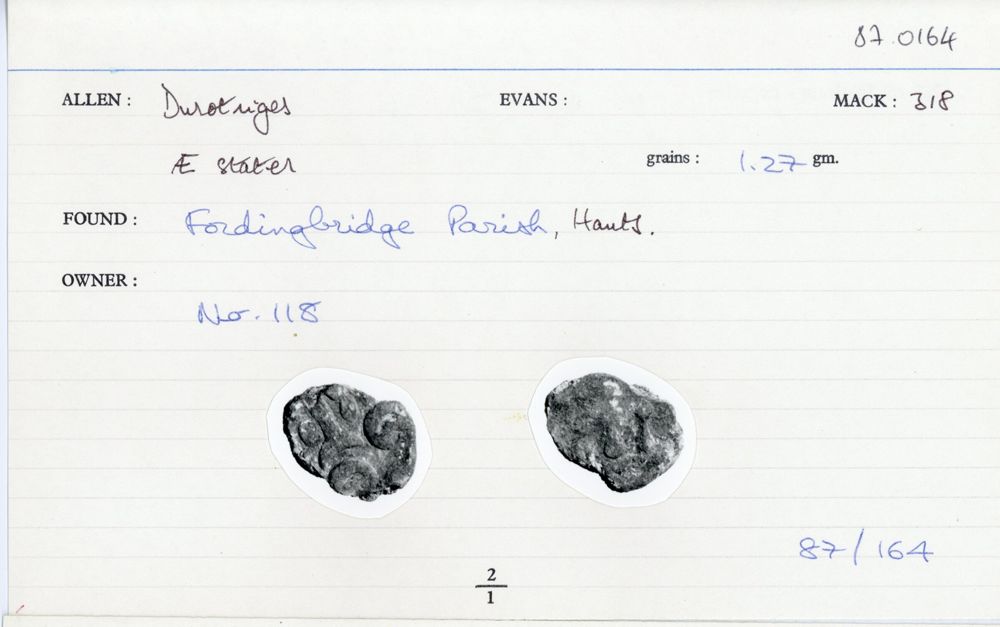 87.0164
ALLEN : Durotriges EVANS : MACK : 318
Æ stater grains : 1.27 gm.
FOUND : Fordingbridge Parish, Hants.
OWNER :
No. 118
87/164
2
1